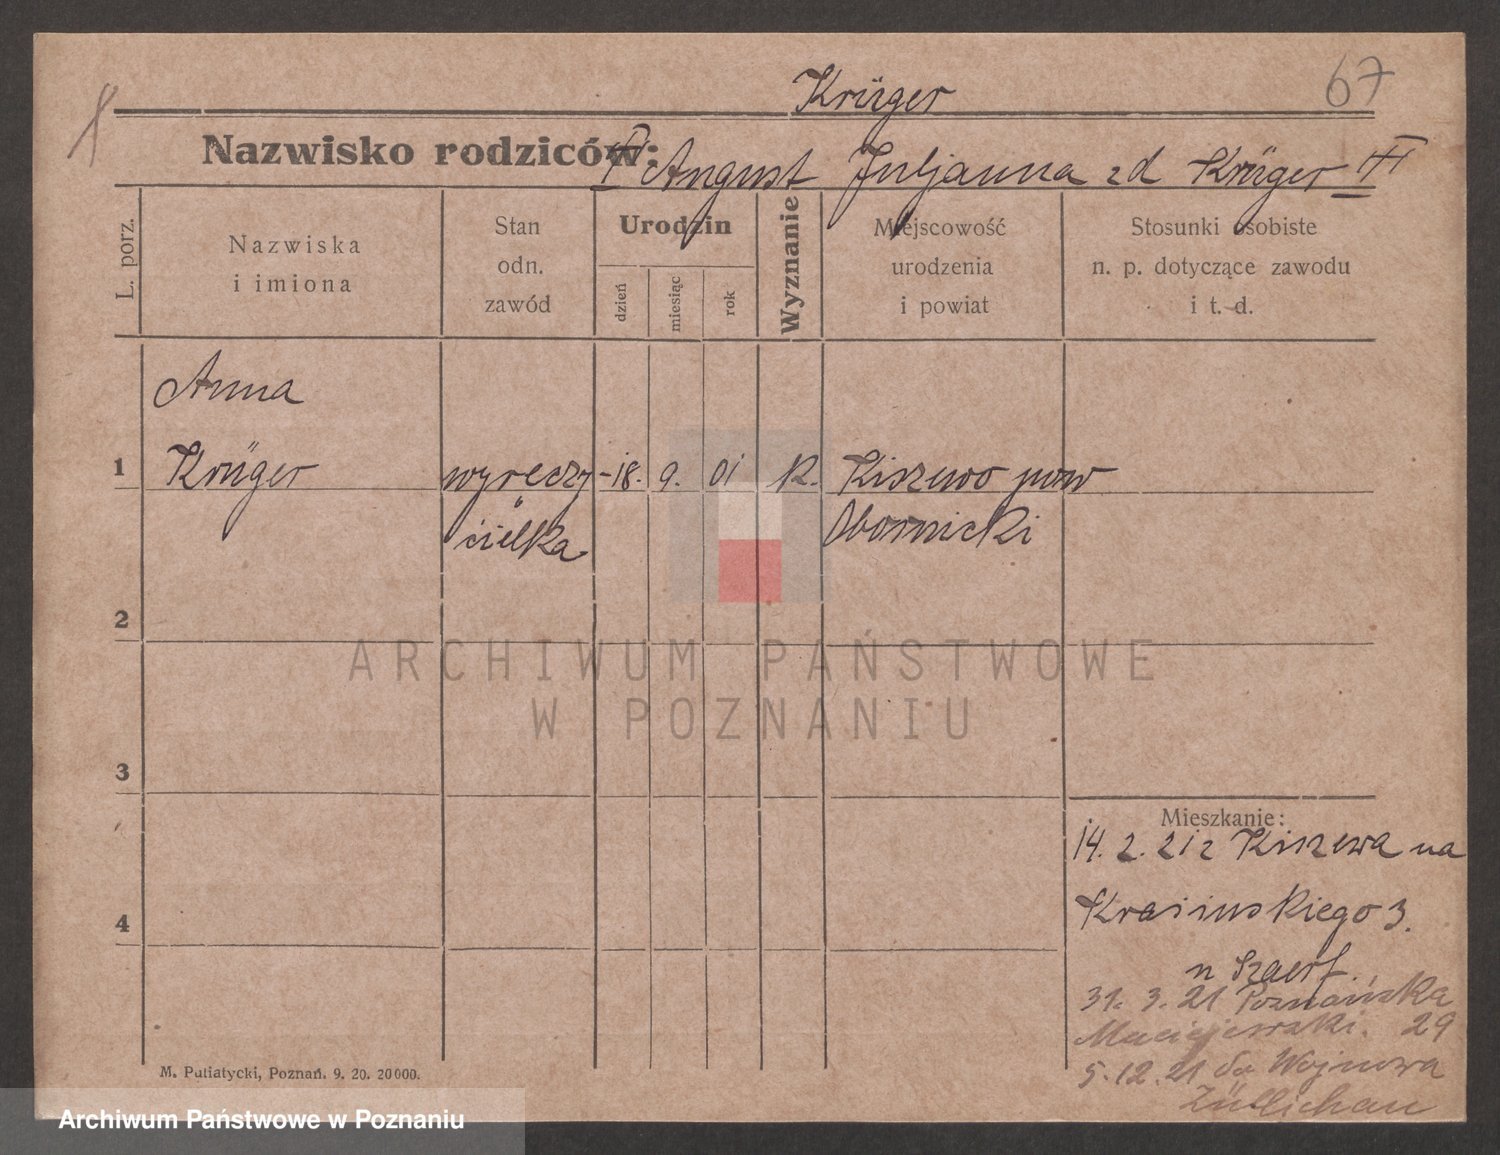 Krüger
67
1
Nazwisko rodziców: August Juljanna zd Krüger
L. porz.
Nazwiska i imiona
Stan odn. zawód
Urodzin
dzień
miesiąc
rok
Wyznanie
Miejscowość urodzenia i powiat
Stosunki osobiste n. p. dotyczące zawodu i t. d.
Anna
1 Krüger wyręczy- 18. 9. 01 k. Kiszewo pow
cielka Obornicki
2
ARCHIWUM PAŃSTWOWE
W POZNANIU
3
Mieszkanie:
14. 2. 21 z Kiszewa na
4 Krasinskiego 3.
31. 3. 21 Poznańska
Maciejewski. 29
5. 12. 21 do Wojnowa
Züllichau
M. Putiatycki, Poznań. 9. 20. 20000.
Archiwum Państwowe w Poznaniu